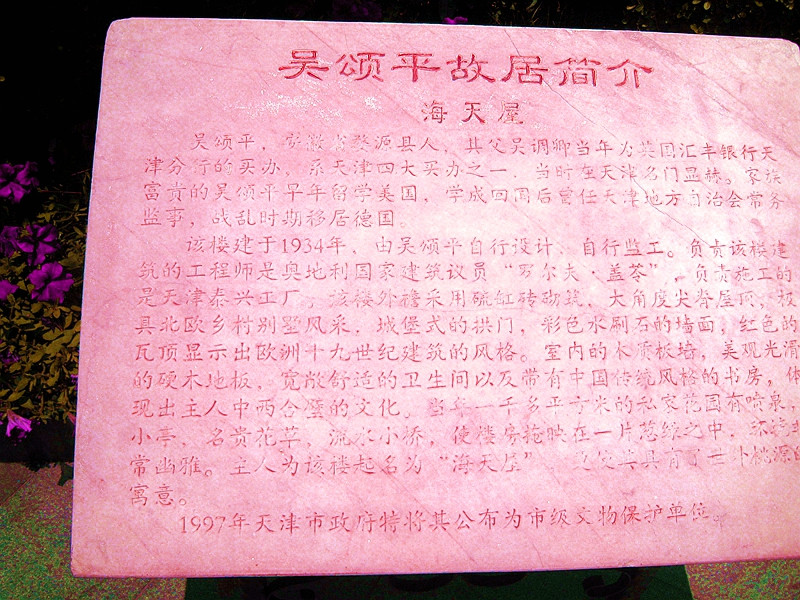 吴颂平故居简介
海天屋
吴颂平，安徽省婺源县人，其父吴调卿当年为英国汇丰银行天
津分行的买办，系天津四大买办之一，当时在天津名门显赫。家族
富贵的吴颂平早年留学美国，学成回国后曾任天津地方自治会常务
监事，战乱时期移居德国。
该楼建于1934年，由吴颂平自行设计、自行监工。负责该楼建
筑的工程师是奥地利国家建筑议员“罗尔夫·盖苓”，负责施工的
是天津泰兴工厂。该楼外檐采用硫缸砖砌筑，大角度尖脊屋顶，极
具北欧乡村别墅风采，城堡式的拱门，彩色水刷石的墙面，红色的
瓦顶显示出欧洲十九世纪建筑的风格。室内的木质板墙，美观光滑
的硬木地板，宽敞舒适的卫生间以及带有中国传统风格的书房，体
现出主人中西合璧的文化。当年一千多平方米的私家花园有喷泉，
小亭，名贵花草，流水小桥，使楼房掩映在一片葱绿之中，环境
常幽雅。主人为该楼起名为“海天屋”，更具有了世外桃源的
寓意。
1997年天津市政府特将其公布为市级文物保护单位。